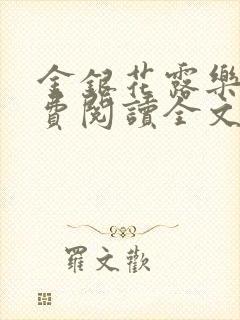 金銀花露樂
費閱讀全文
羅文歡